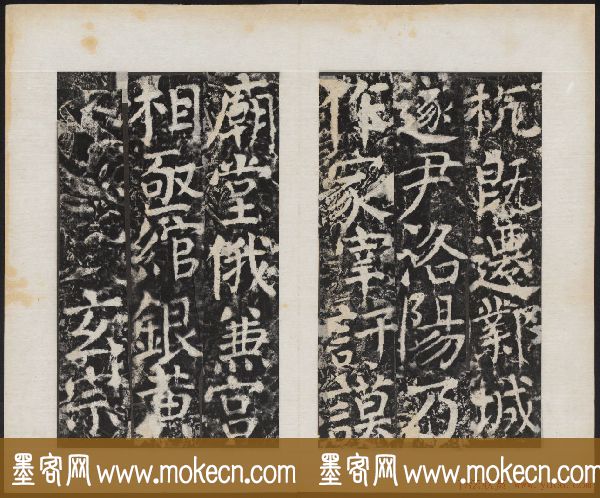 杭既遷鄴城
遂尹洛陽乃
作冢宰訏謨
廟堂俄兼宮
相亟綰銀黃
玄宗
墨客网 www.mokecn.com 墨客网 www.mokecn.com